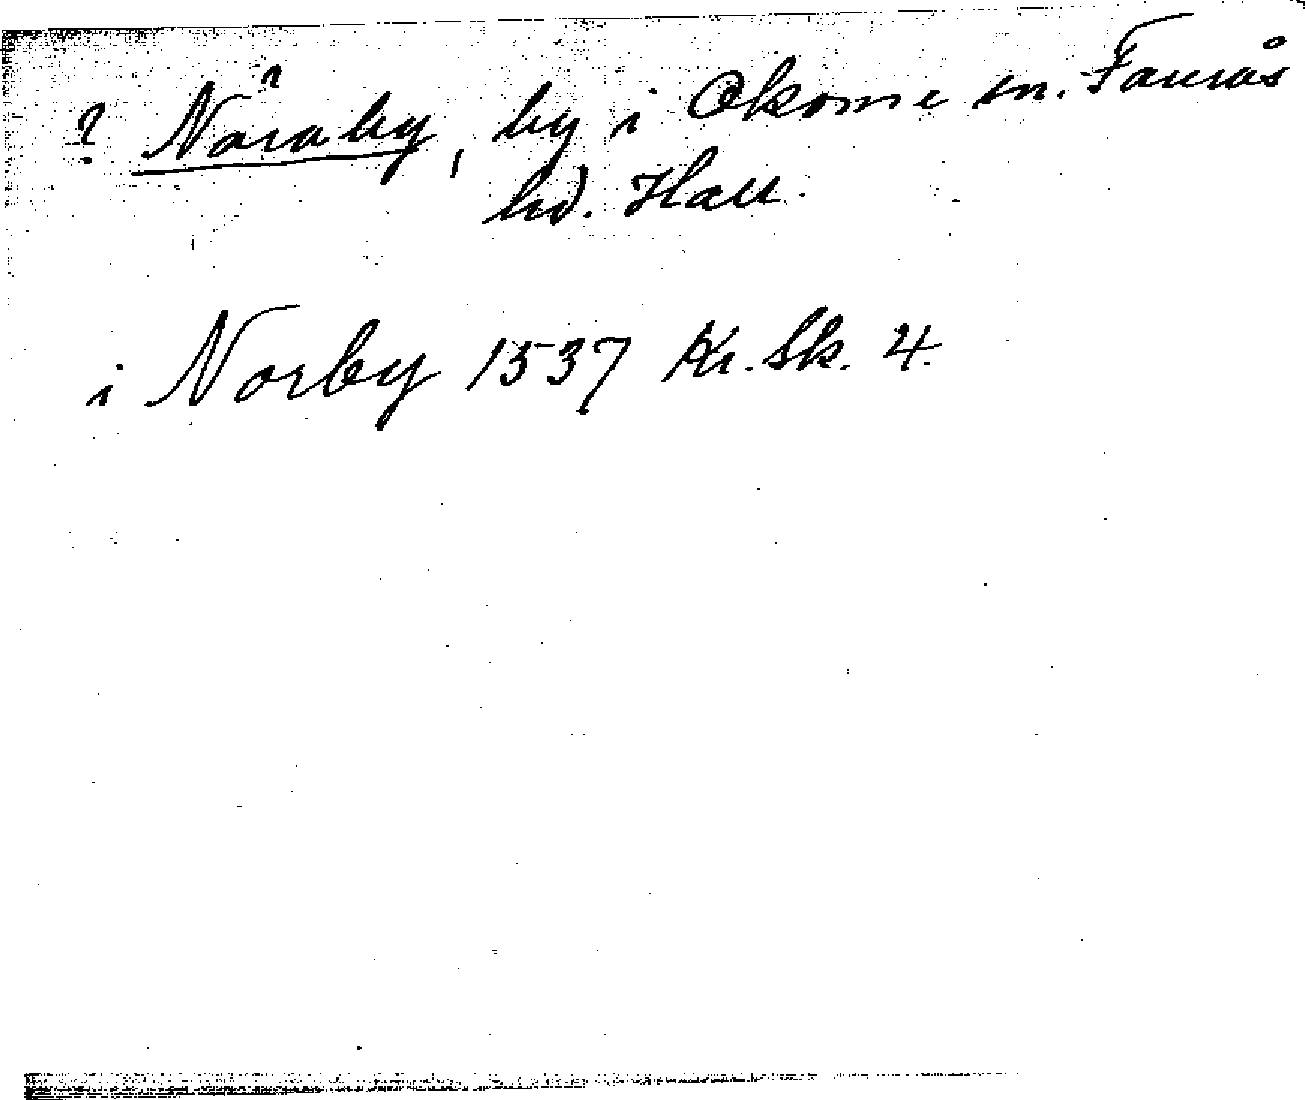 ? Näraby, by i Okome sn. Faurås
hd. Hall.
i Norby 1537 Kr. Sk. 4.